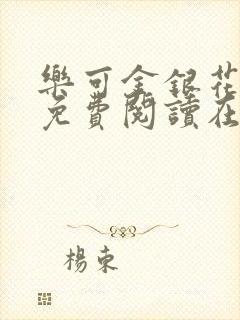 樂可金銀花
免費閱讀在
楊束